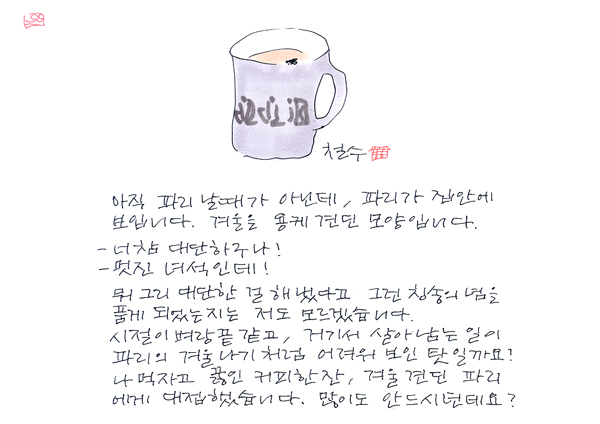 철수
아직 파리 날때가 아닌데, 파리가 집안에
보입니다. 겨울을 용케 견딘 모양입니다.
- 너참 대단하구나!
- 멋진 녀석인데!
뭐 그리 대단한 걸 해냈다고 그런 칭송의 념을
품게 되었는지는 저도 모르겠습니다.
시절이 벼랑끝 같고, 거기서 살아남는 일이
파리의 겨울나기 처럼 어려워 보인 탓일까요?
나 먹자고 끓인 커피한잔, 겨울 견딘 파리
에게 대접했습니다. 많이도 안드시던데요?